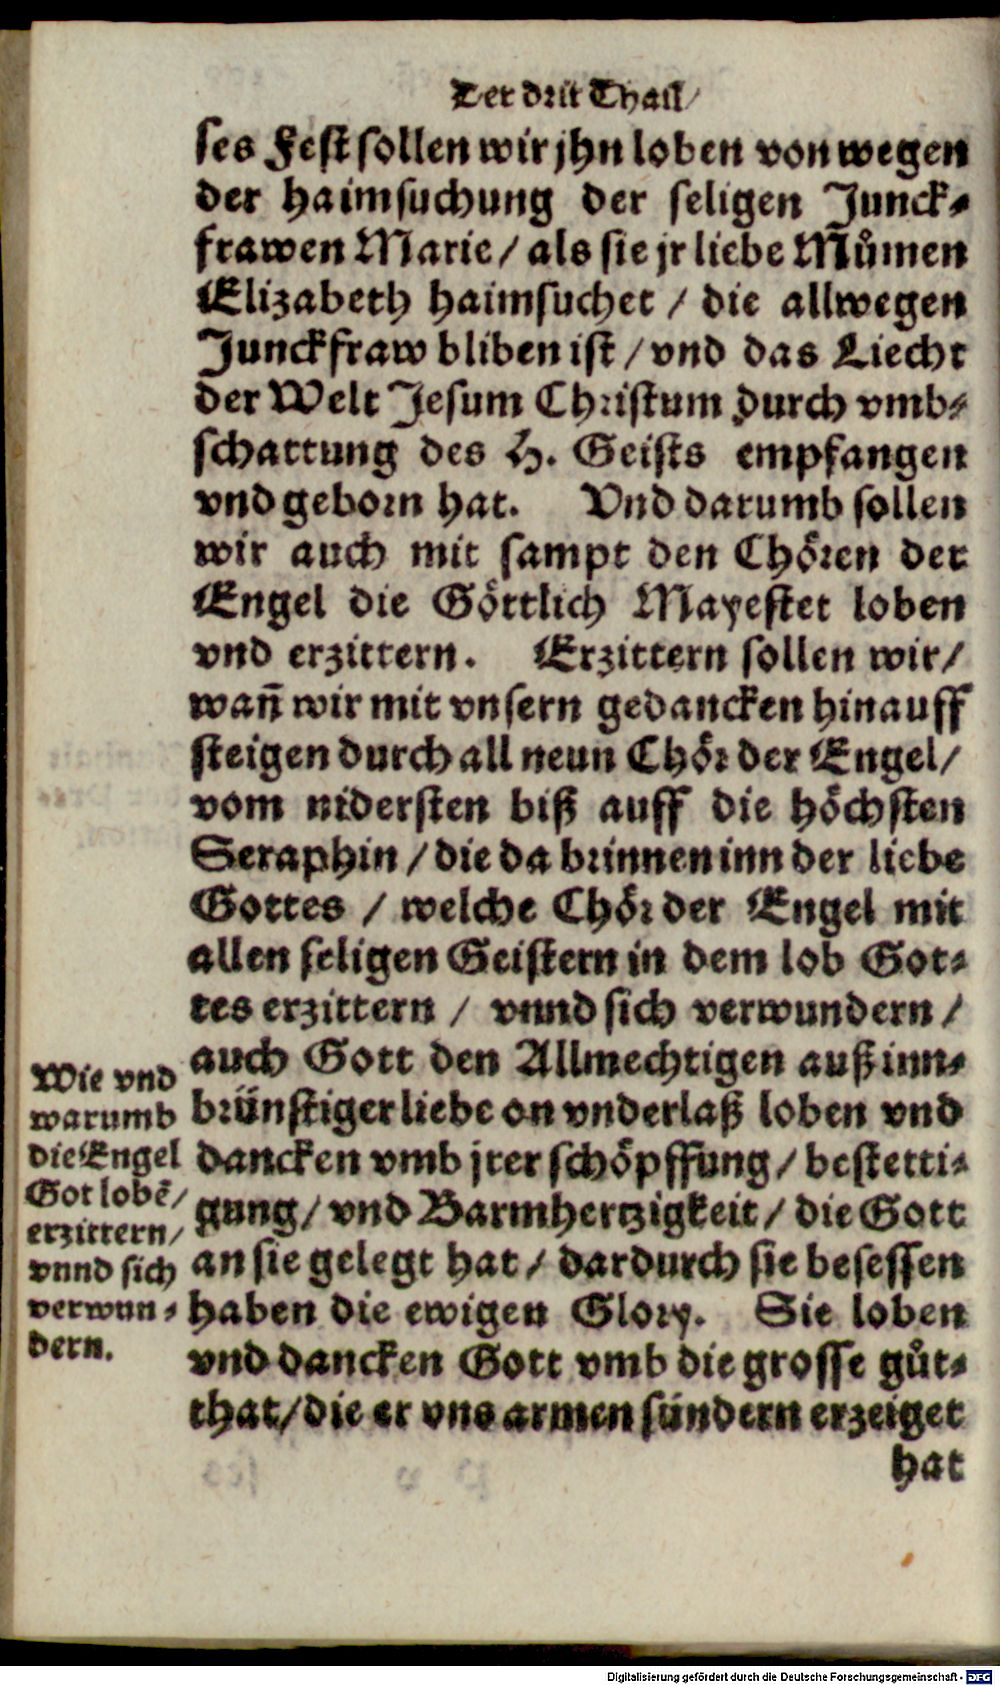 Der drit Thail/
ses Fest sollen wir jhn loben von wegen
der haimsuchung der seligen Junck-
frawen Marie / als sie jr liebe Můmen
Elizabeth haimsuchet / die allwegen
Junckfraw bliben ist / vnd das Liecht
der Welt Jesum Christum durch vmb-
schattung des H. Geists empfangen
vnd geborn hat. Vnd darumb sollen
wir auch mit sampt den Chören der
Engel die Göttlich Mayestet loben
vnd erzittern. Erzittern sollen wir/
wañ wir mit vnsern gedancken hinauff
steigen durch all neun Chör der Engel/
vom nidersten biß auff die höchsten
Seraphin / die da brinnen inn der liebe
Gottes / welche Chör der Engel mit
allen seligen Geistern in dem lob Got-
tes erzittern / vnnd sich verwundern /
auch Gott den Allmechtigen auß inn-
brünstiger liebe on vnderlaß loben vnd
dancken vmb jrer schöpffung / bestetti-
gung / vnd Barmhertzigkeit / die Gott
an sie gelegt hat / dardurch sie besessen
haben die ewigen Glory. Sie loben
vnd dancken Gott vmb die grosse gůt-
that/ die er vns armen sündern erzeiget
hat
Wie vnd
warumb
die Engel
Got lobẽ/
erzittern/
vnnd sich
verwun-
dern.
Digitalisierung gefördert durch die Deutsche Forschungsgemeinschaft - DFG